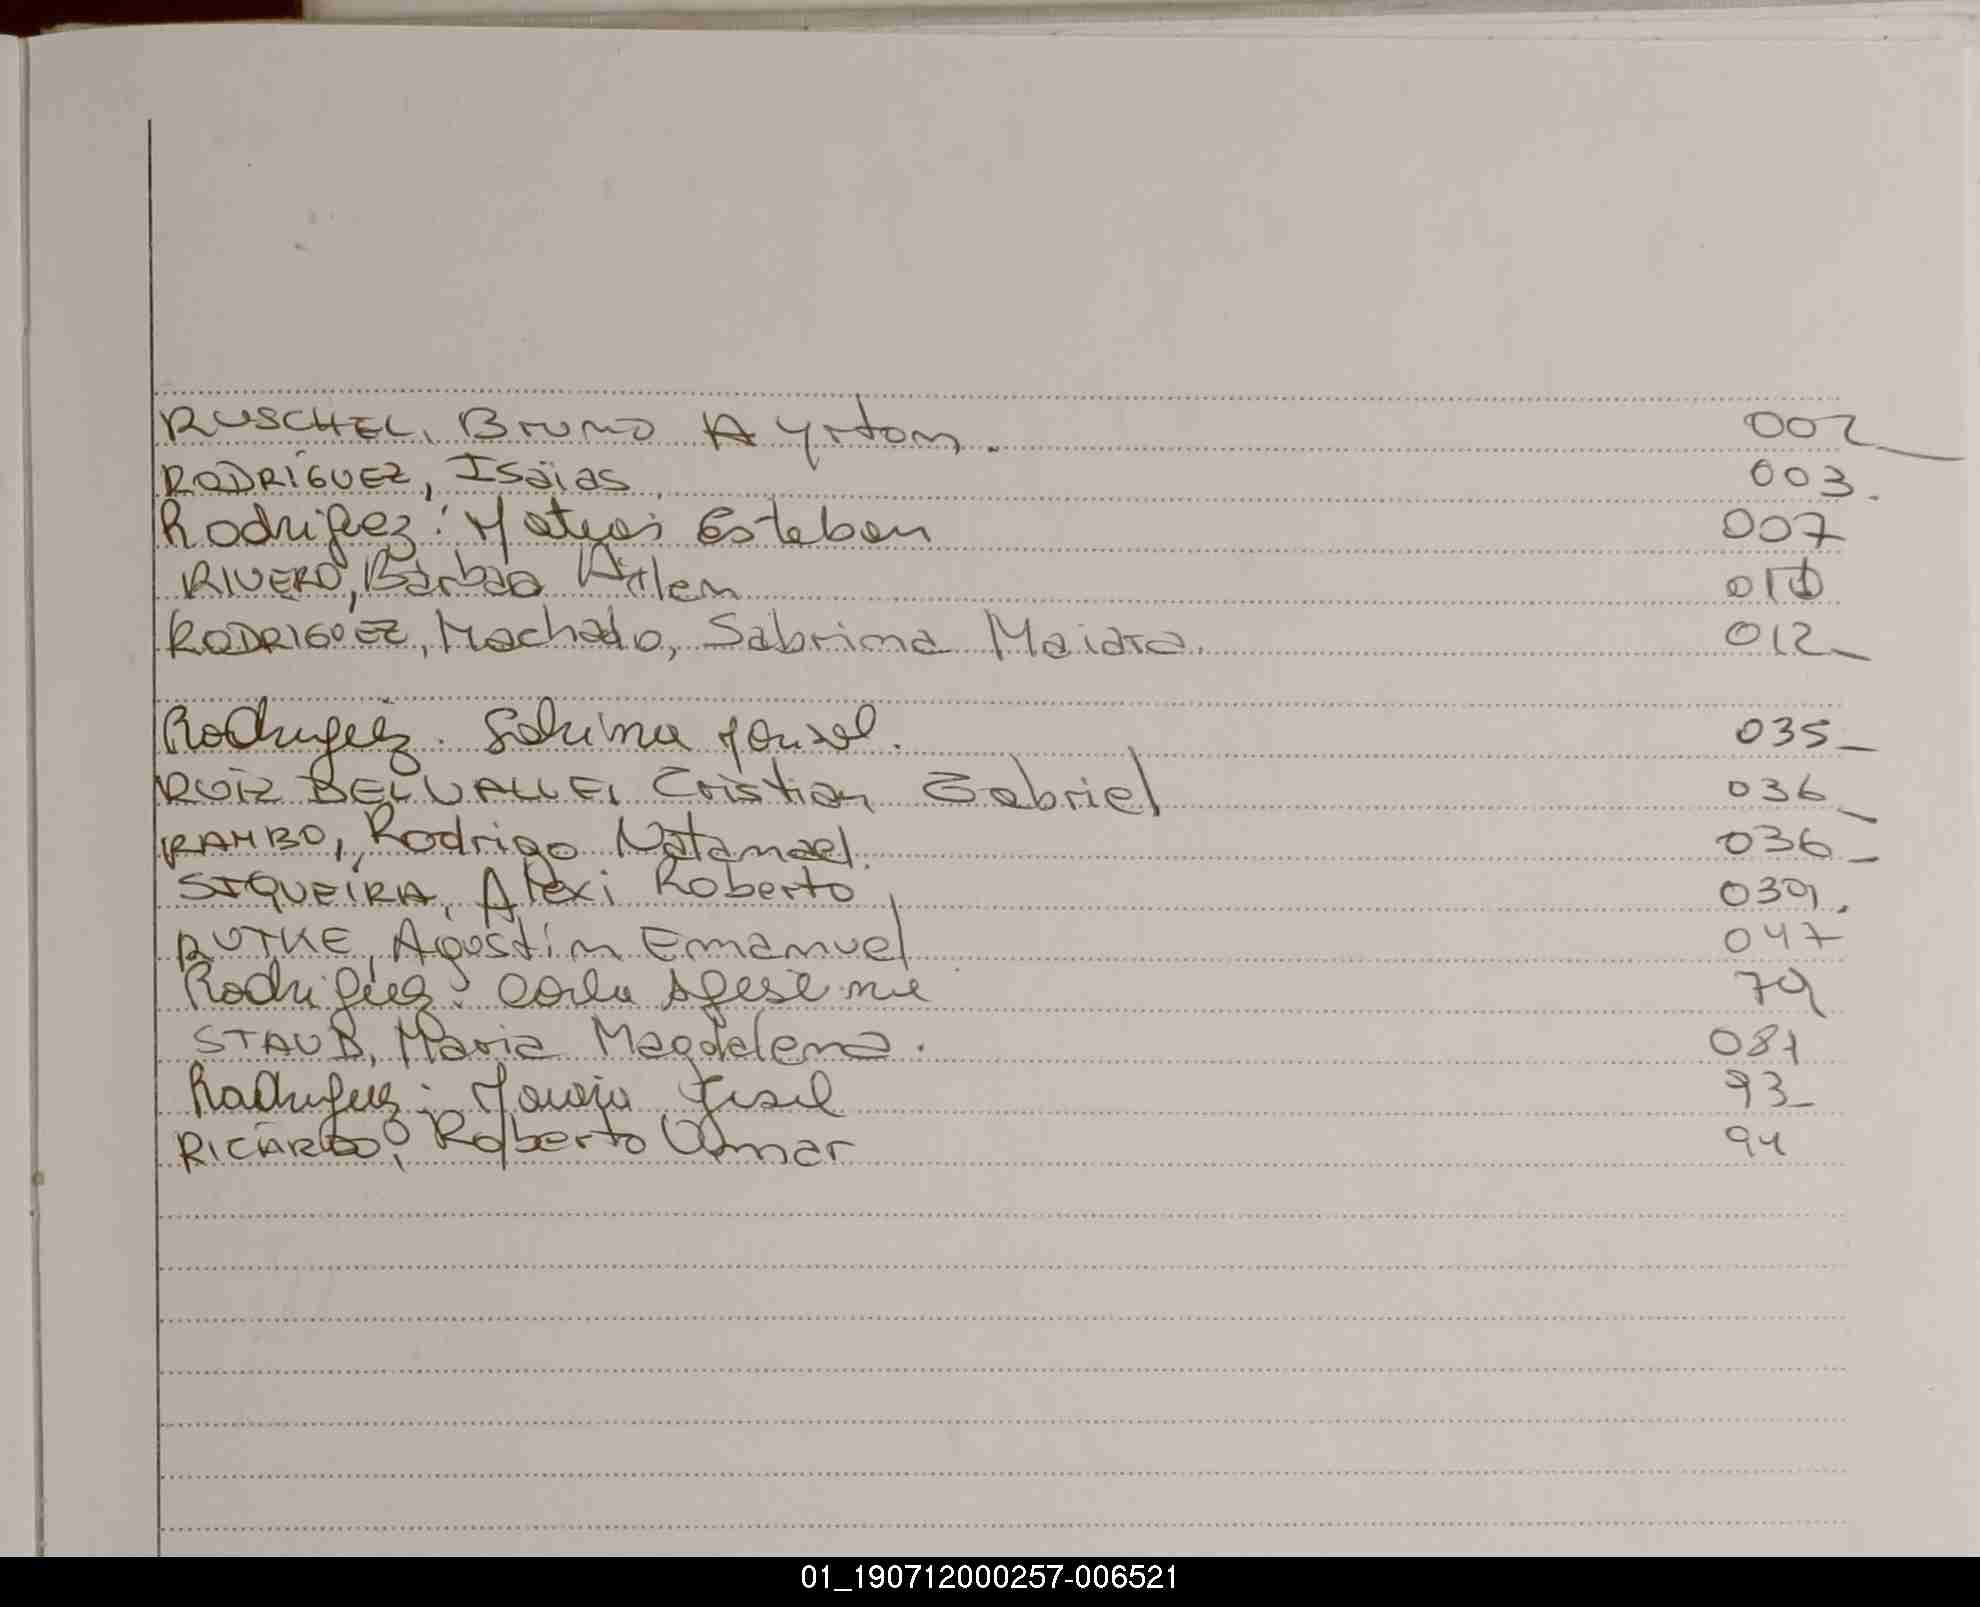 RUSCHEL, Bruno Ayrton. 002
RODRÍGUEZ, Isaias 003.
Rodriguez: Matias Esteban 007
RIVERO, Barbara Arlen
RODRIGUEZ, Machado, Sabrina Maiara. 012
Rodriguez. Sabrina 035
RUIZ BELVALLE, Cristian Gabriel 036
RAMBO, Rodrigo Natanael. 036
SIQUEIRA, Alexi Roberto 039.
RUTKE, Agustin Emanuel 047
Rodriguez: Carla 79
STAUB, Maria Magdalena. 081
Rodriguez: Maria Gisel 93
RICARDO, Roberto Omar 94
01_190712000257-006521